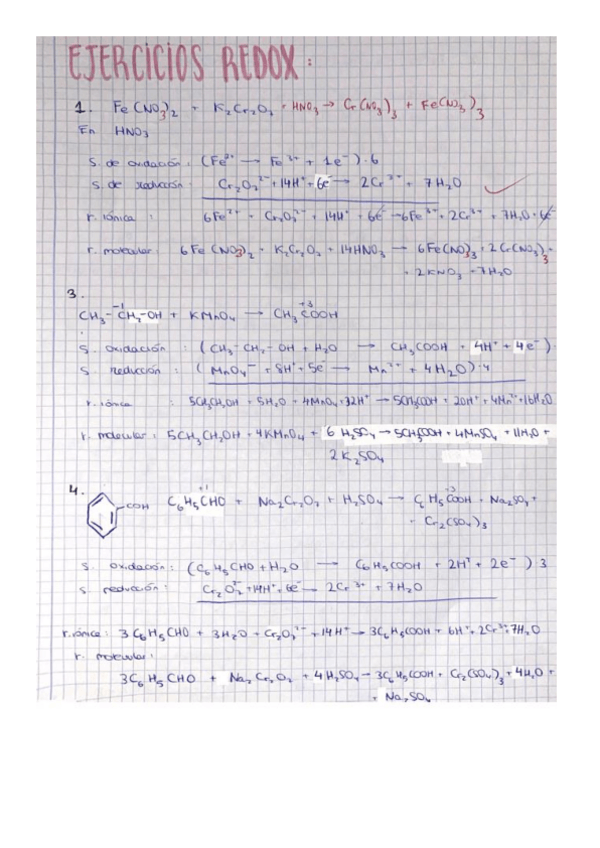 EJERCICIOS REDOX:
1. Fe(NO3)2 + K2Cr2O7 + HNO3 → Cr(NO3)3 + Fe(NO3)3
En HNO3
S. de oxidación: (Fe²⁺ → Fe³⁺ + 1e⁻)·6
S. de reducción: Cr2O7²⁻ + 14H⁺ + 6e⁻ → 2Cr³⁺ + 7H2O
r. iónica: 6Fe²⁺ + Cr2O7²⁻ + 14H⁺ + 6e⁻ → 6Fe³⁺ + 2Cr³⁺ + 7H2O + 6e⁻
r. molecular: 6Fe(NO3)2 + K2Cr2O7 + 14HNO3 → 6Fe(NO3)3 + 2Cr(NO3)3 +
+ 2KNO3 + 7H2O
3.
-1 +3
CH3-CH2-OH + KMnO4 → CH3COOH
S. oxidación: (CH3-CH2-OH + H2O → CH3COOH + 4H⁺ + 4e⁻)
S reducción: (MnO4⁻ + 8H⁺ + 5e⁻ → Mn²⁺ + 4H2O)·4
r. iónica: 5CH3CH2OH + 5H2O + 4MnO4⁻ + 32H⁺ → 5CH3COOH + 20H⁺ + 4Mn²⁺ + 16H2O
r. molecular: 5CH3CH2OH + 4KMnO4 + 6 H2SO4 → 5CH3COOH + 4MnSO4 + 11H2O +
2K2SO4
4. +1 +3
COH C6H5CHO + Na2Cr2O7 + H2SO4 → C6H5COOH + Na2SO4 +
+ Cr2(SO4)3
S. oxidación: (C6H5CHO + H2O → C6H5COOH + 2H⁺ + 2e⁻) 3
S reducción: Cr2O7²⁻ + 14H⁺ + 6e⁻ → 2Cr³⁺ + 7H2O
r. iónica: 3C6H5CHO + 3H2O + Cr2O7²⁻ + 14H⁺ → 3C6H5COOH + 6H⁺ + 2Cr³⁺ + 7H2O
r. molecular:
3C6H5CHO + Na2Cr2O7 + 4H2SO4 → 3C6H5COOH + Cr2(SO4)3 + 4H2O +
+ Na2SO4